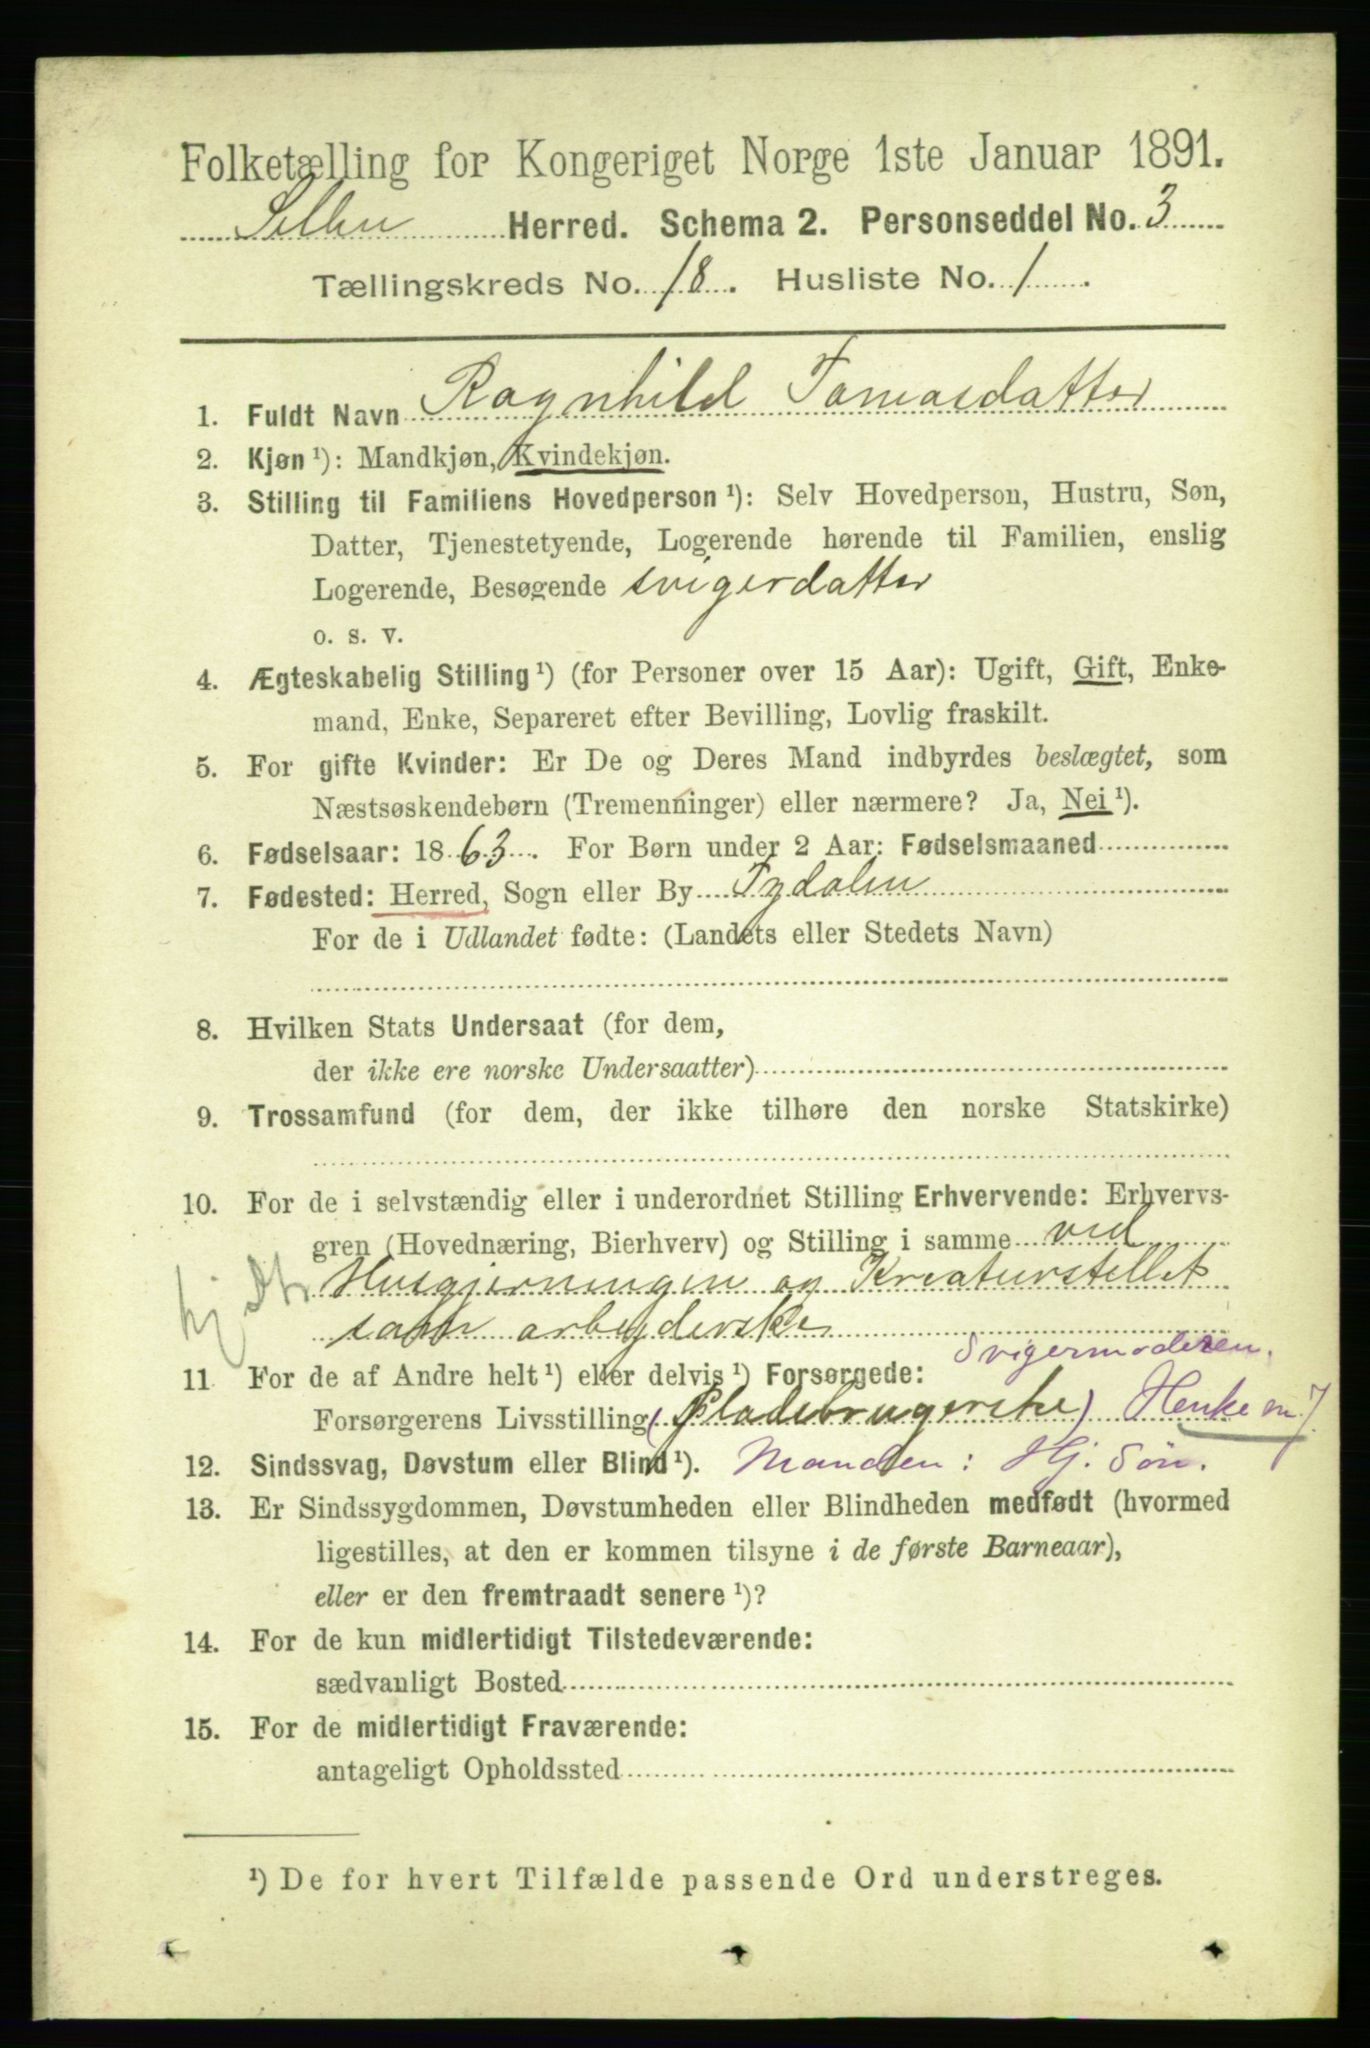 Folketælling for Kongeriget Norge 1ste Januar 1891.
Selbu Herred. Schema 2. Personseddel No. 3
Tællingskreds No. 18. Husliste No. 1.
1. Fuldt Navn Ragnhild Tomasdatter
2. Kjøn ¹): Mandkjøn, Kvindekjøn.
3. Stilling til Familiens Hovedperson ¹): Selv Hovedperson, Hustru, Søn,
Datter, Tjenestetyende, Logerende hørende til Familien, enslig
Logerende, Besøgende svigerdatter
o. s. v.
4. Ægteskabelig Stilling ¹) (for Personer over 15 Aar): Ugift, Gift, Enke-
mand, Enke, Separeret efter Bevilling, Lovlig fraskilt.
5. For gifte Kvinder: Er De og Deres Mand indbyrdes beslægtet, som
Næstsøskendebørn (Tremenninger) eller nærmere? Ja, Nei ¹).
6. Fødselsaar: 1863. For Børn under 2 Aar: Fødselsmaaned
7. Fødested: Herred, Sogn eller By Tydalen
For de i Udlandet fødte: (Landets eller Stedets Navn)
8. Hvilken Stats Undersaat (for dem,
der ikke ere norske Undersaatter)
9. Trossamfund (for dem, der ikke tilhøre den norske Statskirke)
10. For de i selvstændig eller i underordnet Stilling Erhvervende: Erhvervs-
gren (Hovednæring, Bierhverv) og Stilling i samme ved
hj dtr Husgjerningen og Kreaturstellet
som arbejderske
Svigermoderen.
11 For de af Andre helt ¹) eller delvis ¹) Forsørgede:
Forsørgerens Livsstilling (Pladsbrugerske) Henke m 7.
12. Sindssvag, Døvstum eller Blind ¹). Manden: Hj. Søn.
13. Er Sindssygdommen, Døvstumheden eller Blindheden medfødt (hvormed
ligestilles, at den er kommen tilsyne i de første Barneaar),
eller er den fremtraadt senere ¹)?
14. For de kun midlertidigt Tilstedeværende:
sædvanligt Bosted
15. For de midlertidigt Fraværende:
antageligt Opholdssted
¹) De for hvert Tilfælde passende Ord understreges.